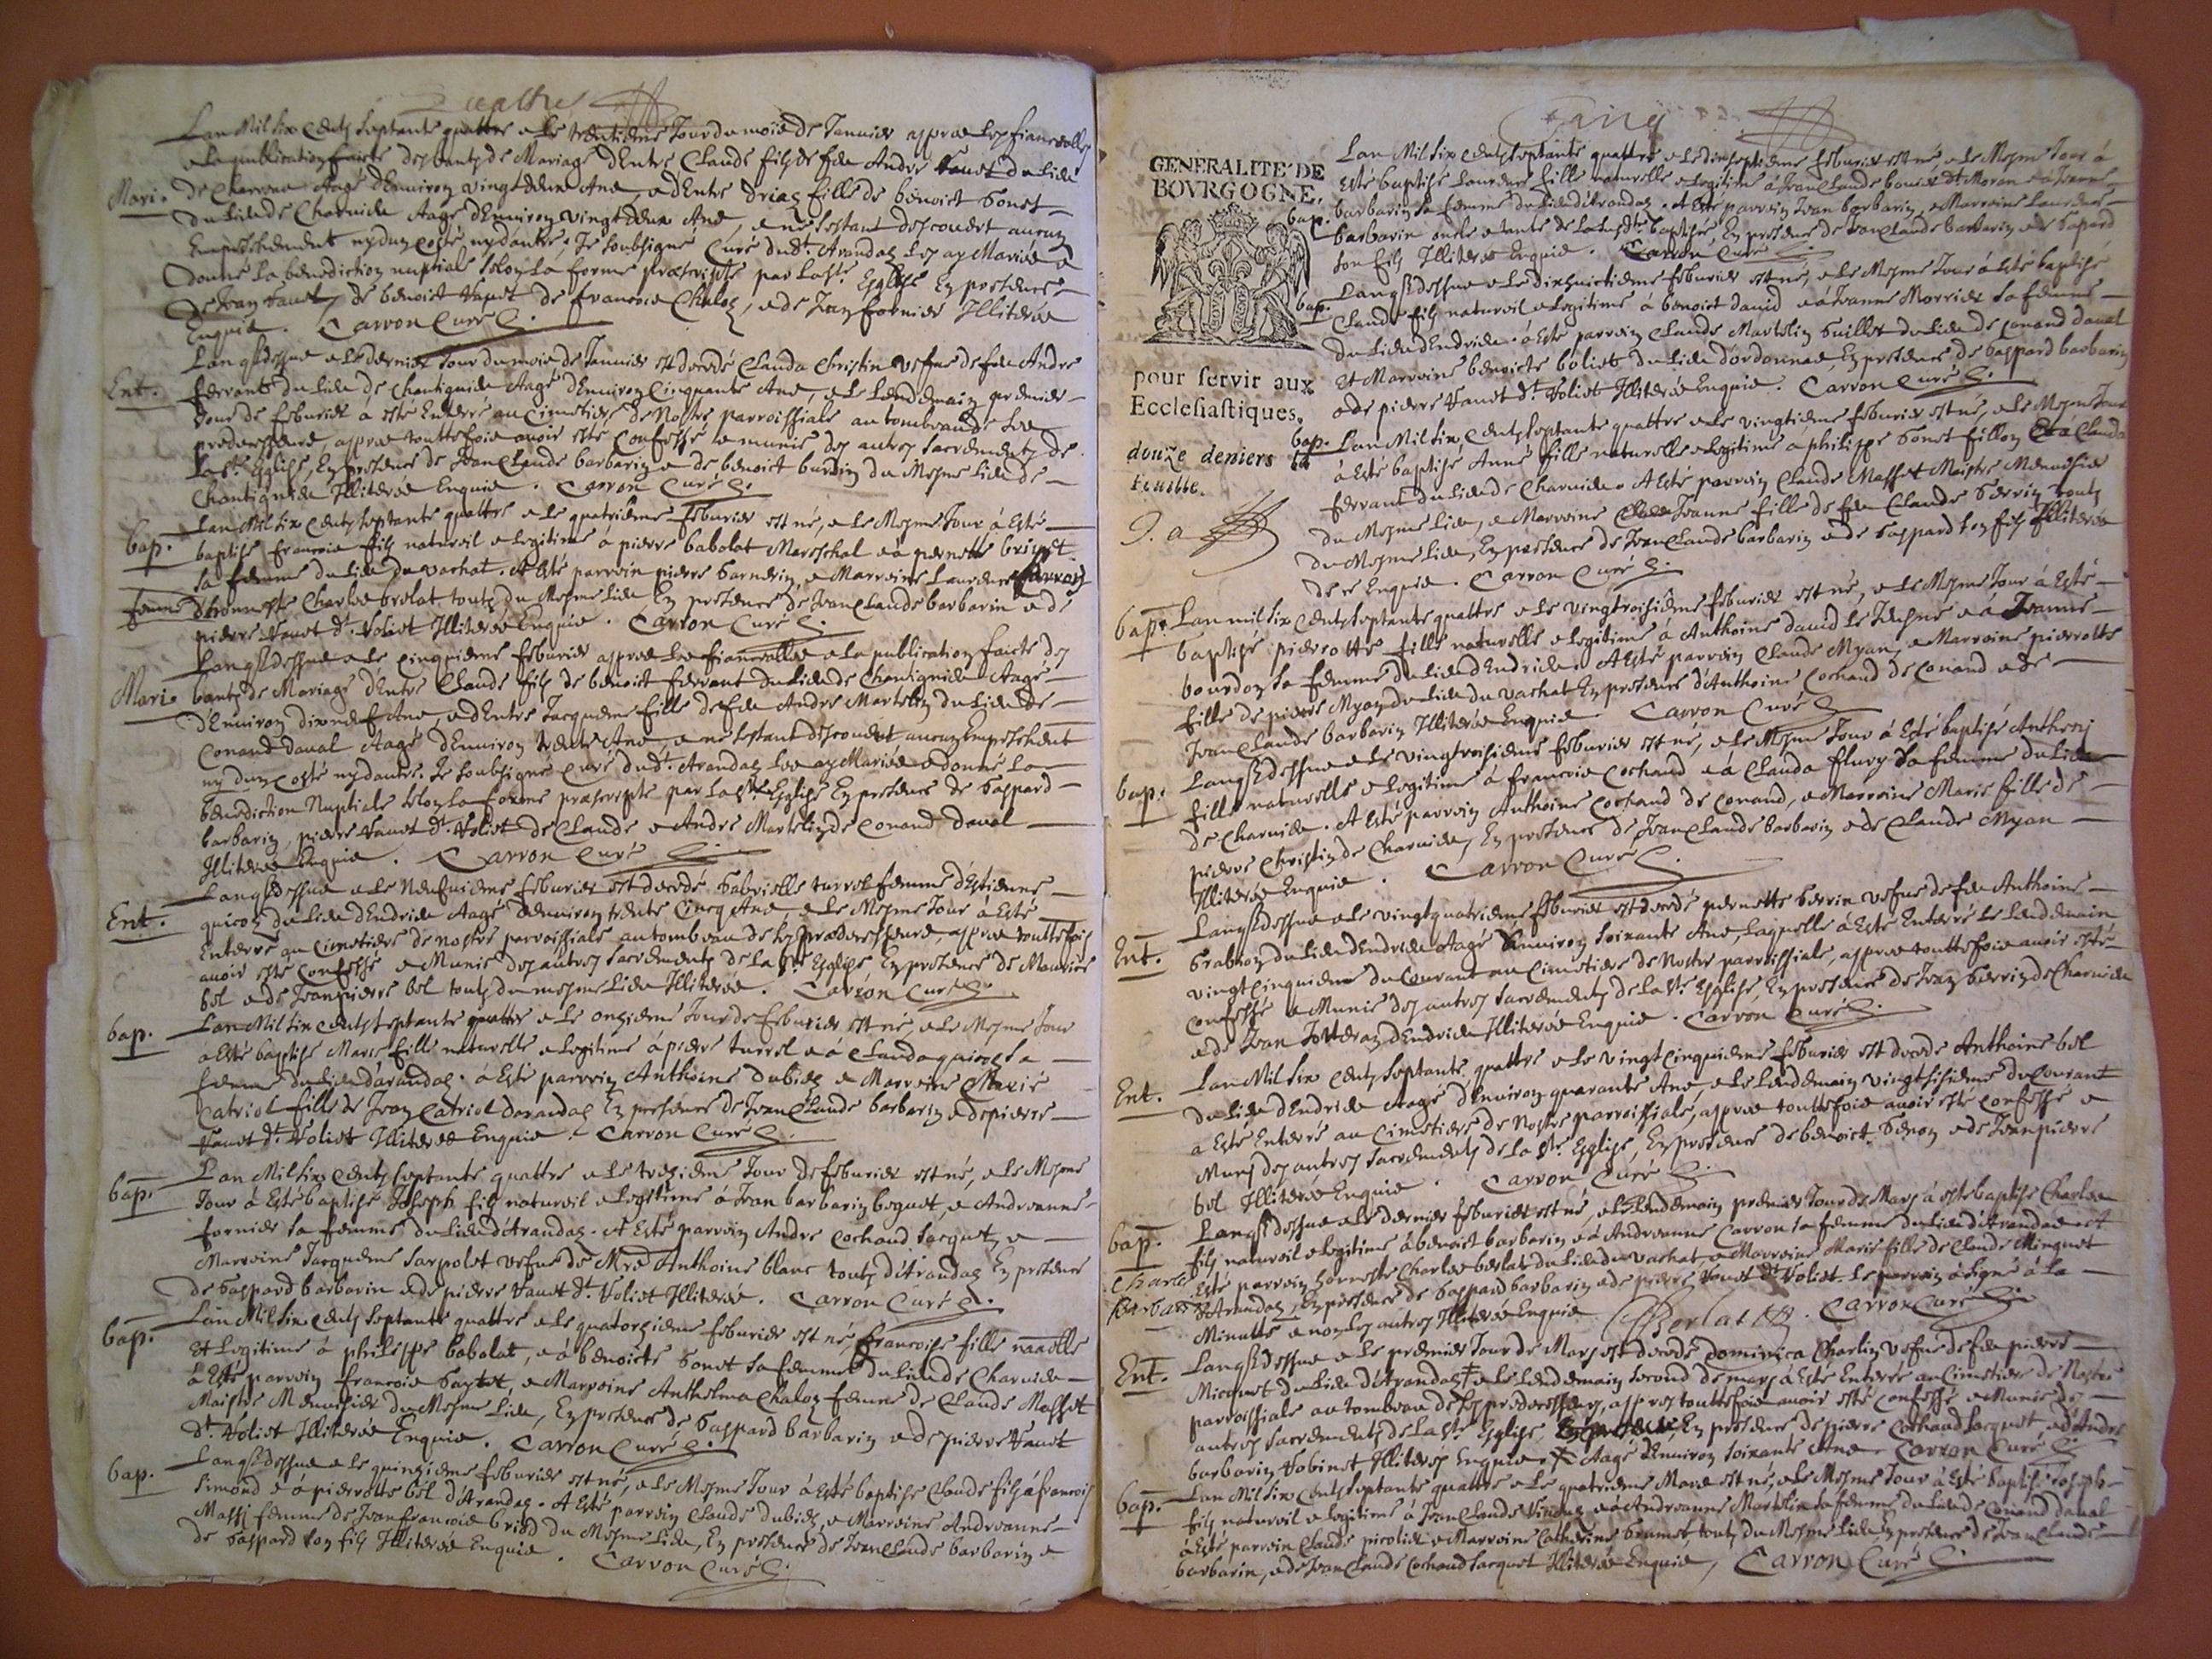 Quattre
Lan Mil Six Centz Septante quattre & le trentiesme Jour du mois de Januier appres les fiancealles
& la publication faicte des bantz de Mariage d'Entre Claude filz de feu André Vanet du lieu
Mari. de Charvieu Aagé d'Enuiron vingt deux Ans, & d'Entre fille de benoict bonet
du lieu de Charuieu Aagée d'Enuiron vingt deux Ans, & ne s'estant descouuert aucun
Empeschement ny d'un costé, ny d'autre, Je soubsigné Curé dudt. Arandaz les ay Mariés &
donné la benediction nuptiale selon la forme præscripte par la Ste. Esglise En presence
de Jean Vanet, de benoist Vanet de francois Chaloz, & de Jean fornier Illiterés
Enquis. Carron Curé
L'an q. dessus & le dernier Jour du mois de Januier est decedé Clauda Christin vefue de feu André
Ent. ferrant du lieu de Chantiguieu Aagé d'Enuiron Cinquante Ans, & le lendemain premier
Jour de feburier a esté Enterré au Cimetiere de Nostre parroissiale au tombeau de ses
predecesseurs, appres touttefois auoir esté Confessé & munie des autres sacrementz de
la Ste. Esglise, En presence de Jean Claude barbarin & de benoict burdin du Mesme lieu de
Chantiguieu Illiterés Enquis. Carron Curé
Lan Mil Six Centz Septante quattre & le quatriesme feburier est né, & le Mesme Jour à Esté
bap. baptisé francois filz naturel & legitime a pierre babolat Mareschal & à pernette
sa femme du lieu du vachat. A Esté parrein pierre & Marreine Laurence Carron
femme d'honneste Charles berlat toutz du Mesme lieu En presence de Jean Claude barbarin & de
pierre Vanet dt. Voliet Illiterés Enquis. Carron Curé
L'an q. dessus & le cinquiesme feburier appres les fiancealles & la publication faicte des
Mari. bantz de Mariage d'Entre Claude filz de benoist ferrant du lieu de Chantiguieu Aagé
d'Enuiron dix neuf Ans, & d'Entre Jacquème fille de feu André Martelin du lieu de
Conand d'aual Aagé d'Enuiron trente Ans & ne s'estant descouuert aucun Empeschement
ny d'un costé ny d'autre. Je soubsigné curé dudt. Arandaz les ay Mariés & donné la
benediction Nuptiale selon la forme præscripte par la Ste. Esglise En presence de Gaspard
barbarin, pierre Vanet dt. Voliet de Claude & André Martelin de Conand d'aual
Illiterés Enquis. Carron Curé
L'an q. dessus & le Neufuiesme feburier est decedé Gabrielle turrel femme d'Estienne
Ent. quicoz du lieu d'Endrieu Aagé d'enuiron trente Cinq Ans, & le Mesme Jour à Esté
Enterré au Cimetiere de nostre parroissiale au tombeau de ses prædecesseurs, appres touttefois
auoir esté Confessé & Munie des autres sacrementz de la Ste. Esglise En presence de Maurice
bel & de Jean pierre bel toutz du mesme lieu Illiterés. Carron Curé
bap. Lan Mil Six Centz Septante quattre & le onziesme Jour de feburier est né, & le Mesme Jour
à Esté baptisé Marie fille naturelle & legitime à pierre turrel & à Clauda quicoz sa
femme du lieu d'arandaz. à Esté parrein Anthoine dubiez & Marreine Marie
Catriol fille de Jean Catriol d'arandaz En presence de Jean Claude barbarin & de pierre
Vanet dt. Voliet Illiterés Enquis. Carron Curé
Lan Mil Six Centz Septante quattre & le treziesme Jour de feburier est né, & le Mesme
bap. Jour à Esté baptisé Joseph filz naturel & legitime à Jean barbarin boguet, & Andreanne
fornier sa femme du lieu d'Arandaz. A Esté parrein André Cochaud Jacquet, &
Marreine Jacquème Sarpolet vefue de Mre Anthoine blanc toutz d'Arandaz En presence
de Gaspard barbarin & de pierre Vanet dt. Voliet Illiterés. Carron Curé
bap. Lan Mil Six Centz Septante quattre & le quatorziesme feburier est né, francoise fille naalle
Et legitime à philippe babolat, & à benoicte bonet sa femme du lieu de Charuieu
à Esté parrein francois & Marreine Anthelma Chaloz femme de Claude Masset
Maistre Menuisier du Mesme lieu, En presence de Gaspard barbarin & de pierre Vanet
dt. Voliet Illiterés Enquis. Carron Curé
bap. L'an q. dessus & le quinziesme feburier est né, & le Mesme Jour à Esté baptisé Claude filz à francois
Simond & à pierrotte bel d'Arandaz. A Esté parrein Claude dubiez & Marreine Andreanne
Massj femme de Jean francois du Mesme lieu, En presence de Jean Claude barbarin &
de Gaspard son filz Illiterés Enquis. Carron Curé
Cinq
GENERALITE' DE
BOVRGOGNE,
pour servir aux
Ecclesiastiques,
douze deniers la
feuille.
Lan Mil Six Centz Septante quattre & le dixseptiesme feburier est né, & le Mesme Jour à
Esté baptisé Laurence fille naturelle & legitime à Jean Claude bouier dt. Moran & à Jeanne
bap. barbarin sa femme du lieu d'Arandaz. A Esté parrein Jean barbarin, & Marreine Laurence
barbarin oncle & tante de la susdte. baptisée, En presence de Jean Claude barbarin & de Gaspard
son filz Illiterés Enquis. Carron Curé
L'an q. dessus & le dixhuictiesme feburier est né, & le Mesme Jour à Esté baptisé
bap. Claude filz naturel & legitime à benoict dauid & à Jeanne Morrier sa femme
du lieu d'Endrieu. à Esté parrein Claude Martelin Guillet du lieu de Conand d'aual
et Marreine benoicte boliet du lieu d'ordonnas, En presence de Gaspard barbarin
& de pierre Vanet dt. Voliet Illiterés Enquis. Carron Curé
bap. Lan Mil Six Centz Septante quattre & le vingtiesme feburier est né, & le Mesme Jour
à Esté baptisé Anne fille naturelle & legitime a philippe bonet fillon & à Clauda
ferrant du lieu de Charuieu. A Esté parrein Claude Masset Maistre Menuisier
du Mesme lieu, & Marreine Jeanne fille de feu Claude Gerrin toutz
du Mesme lieu, En presence de Jean Claude barbarin & de Gaspard son filz Illiterés
de ce Enquis. Carron Curé
bap. Lan mil Six Centz Septante quattre & le vingtroisiesme feburier est né, & le Mesme Jour à Esté
baptisé pierrotte fille naturelle & legitime à Anthoine dauid le Jeusne & à Jeanne
bourdon sa femme du lieu d'Endrieu. A Esté parrein Claude Myan, & Marreine pierrotte
fille de pierre Myan du lieu du vachat En presence d'Anthoine Cochaud de Conand & de
Jean Claude barbarin Illiterés Enquis. Carron Curé
L'an q. dessus & le vingtroisiesme feburier est né, & le Mesme Jour à Esté baptisé
bap. fille naturelle & legitime à francois Cochaud & à Clauda flury sa femme du lieu
de Charuieu. A Esté parrein Anthoine Cochaud de Conand, & Marreine Marie fille de
pierre Christin de Charuieu, En presence de Jean Claude barbarin & de Claude Myan
Illiterés Enquis. Carron Curé
L'an q. dessus & le vingt quatriesme feburier est decedé pernette Gerrin vefue de feu Anthoine
Ent. Grabioz du lieu d'Endrieu Aagé d'Enuiron Soixante Ans, laquelle à Esté Enterré le lendemain
vingt Cinquiesme du Courant au Cimetiere de Nostre parroissiale, appres touttefois auoir esté
Confessé & Munie des autres Sacrementz de la Ste. Esglise, En presence de Jean Gerrin de Charuieu
& de Jean d'Endrieu Illiterés Enquis. Carron Curé
Ent. Lan Mil Six Centz Septante quattre & le vingt Cinquiesme feburier est decedé Anthoine bel
du lieu d'Endrieu Aagé d'Enuiron quarante Ans, & le lendemain vingt sisiesme du Courant
a Esté Enterré au Cimetiere de Nostre parroissiale, appres touttefois auoir esté Confessé &
Muny des autres Sacrementz de la Ste. Esglise, En presence de benoict & de Jean pierre
bel Illiterés Enquis. Carron Curé
L'an q. dessus & le dernier feburier est né, & le lendemain premier Jour de Mars à esté baptisé Charles
bap. filz naturel & legitime à benoist barbarin & à Andreanne Carron sa femme du lieu d'Arandas et
Charle Esté parrein honneste Charles berlat du lieu du vachat, & Marreine Marie fille de Claude Minguet
Barbarin d'Arandaz, En presence de Gaspard barbarin & de pierre Vanet dt. Voliet. Le parrein à signé à la
Minutte & non les autres Illiterés Enquis. CBerlat. Carron Curé
Ent. L'an q. dessus & le premier Jour de Mars est decedé dominica Charlin vefue de feu pierre
Micquet du lieu d'Arandaz ‡ & le lendemain second de mars à Esté Enterée au Cimetiere de Nostre
parroissiale au tombeau de ses predecesseurs, appres touttefois auoir esté Confessé & Munie des
autres Sacrementz de la Ste. Esglise, En presence de pierre Cochaud Jacquet & d'André
barbarin Vobinet Illiterés Enquis ‡ Aagé d'Enuiron Soixante Ans. Carron Curé
bap. Lan Mil Six Centz Septante quattre & le quatriesme Mars est né, & le Mesme Jour à Esté baptisé Joseph
filz naturel & legitime à Jean Claude & à Andreanne Martelin sa femme du lieu de Conand d'aual
à Esté parrein Claude picolier & Marreine Catherine toutz du Mesme lieu En presence de Jean Claude
barbarin, & de Jean Claude Cochaud Jacquet Illiterés Enquis, Carron Curé